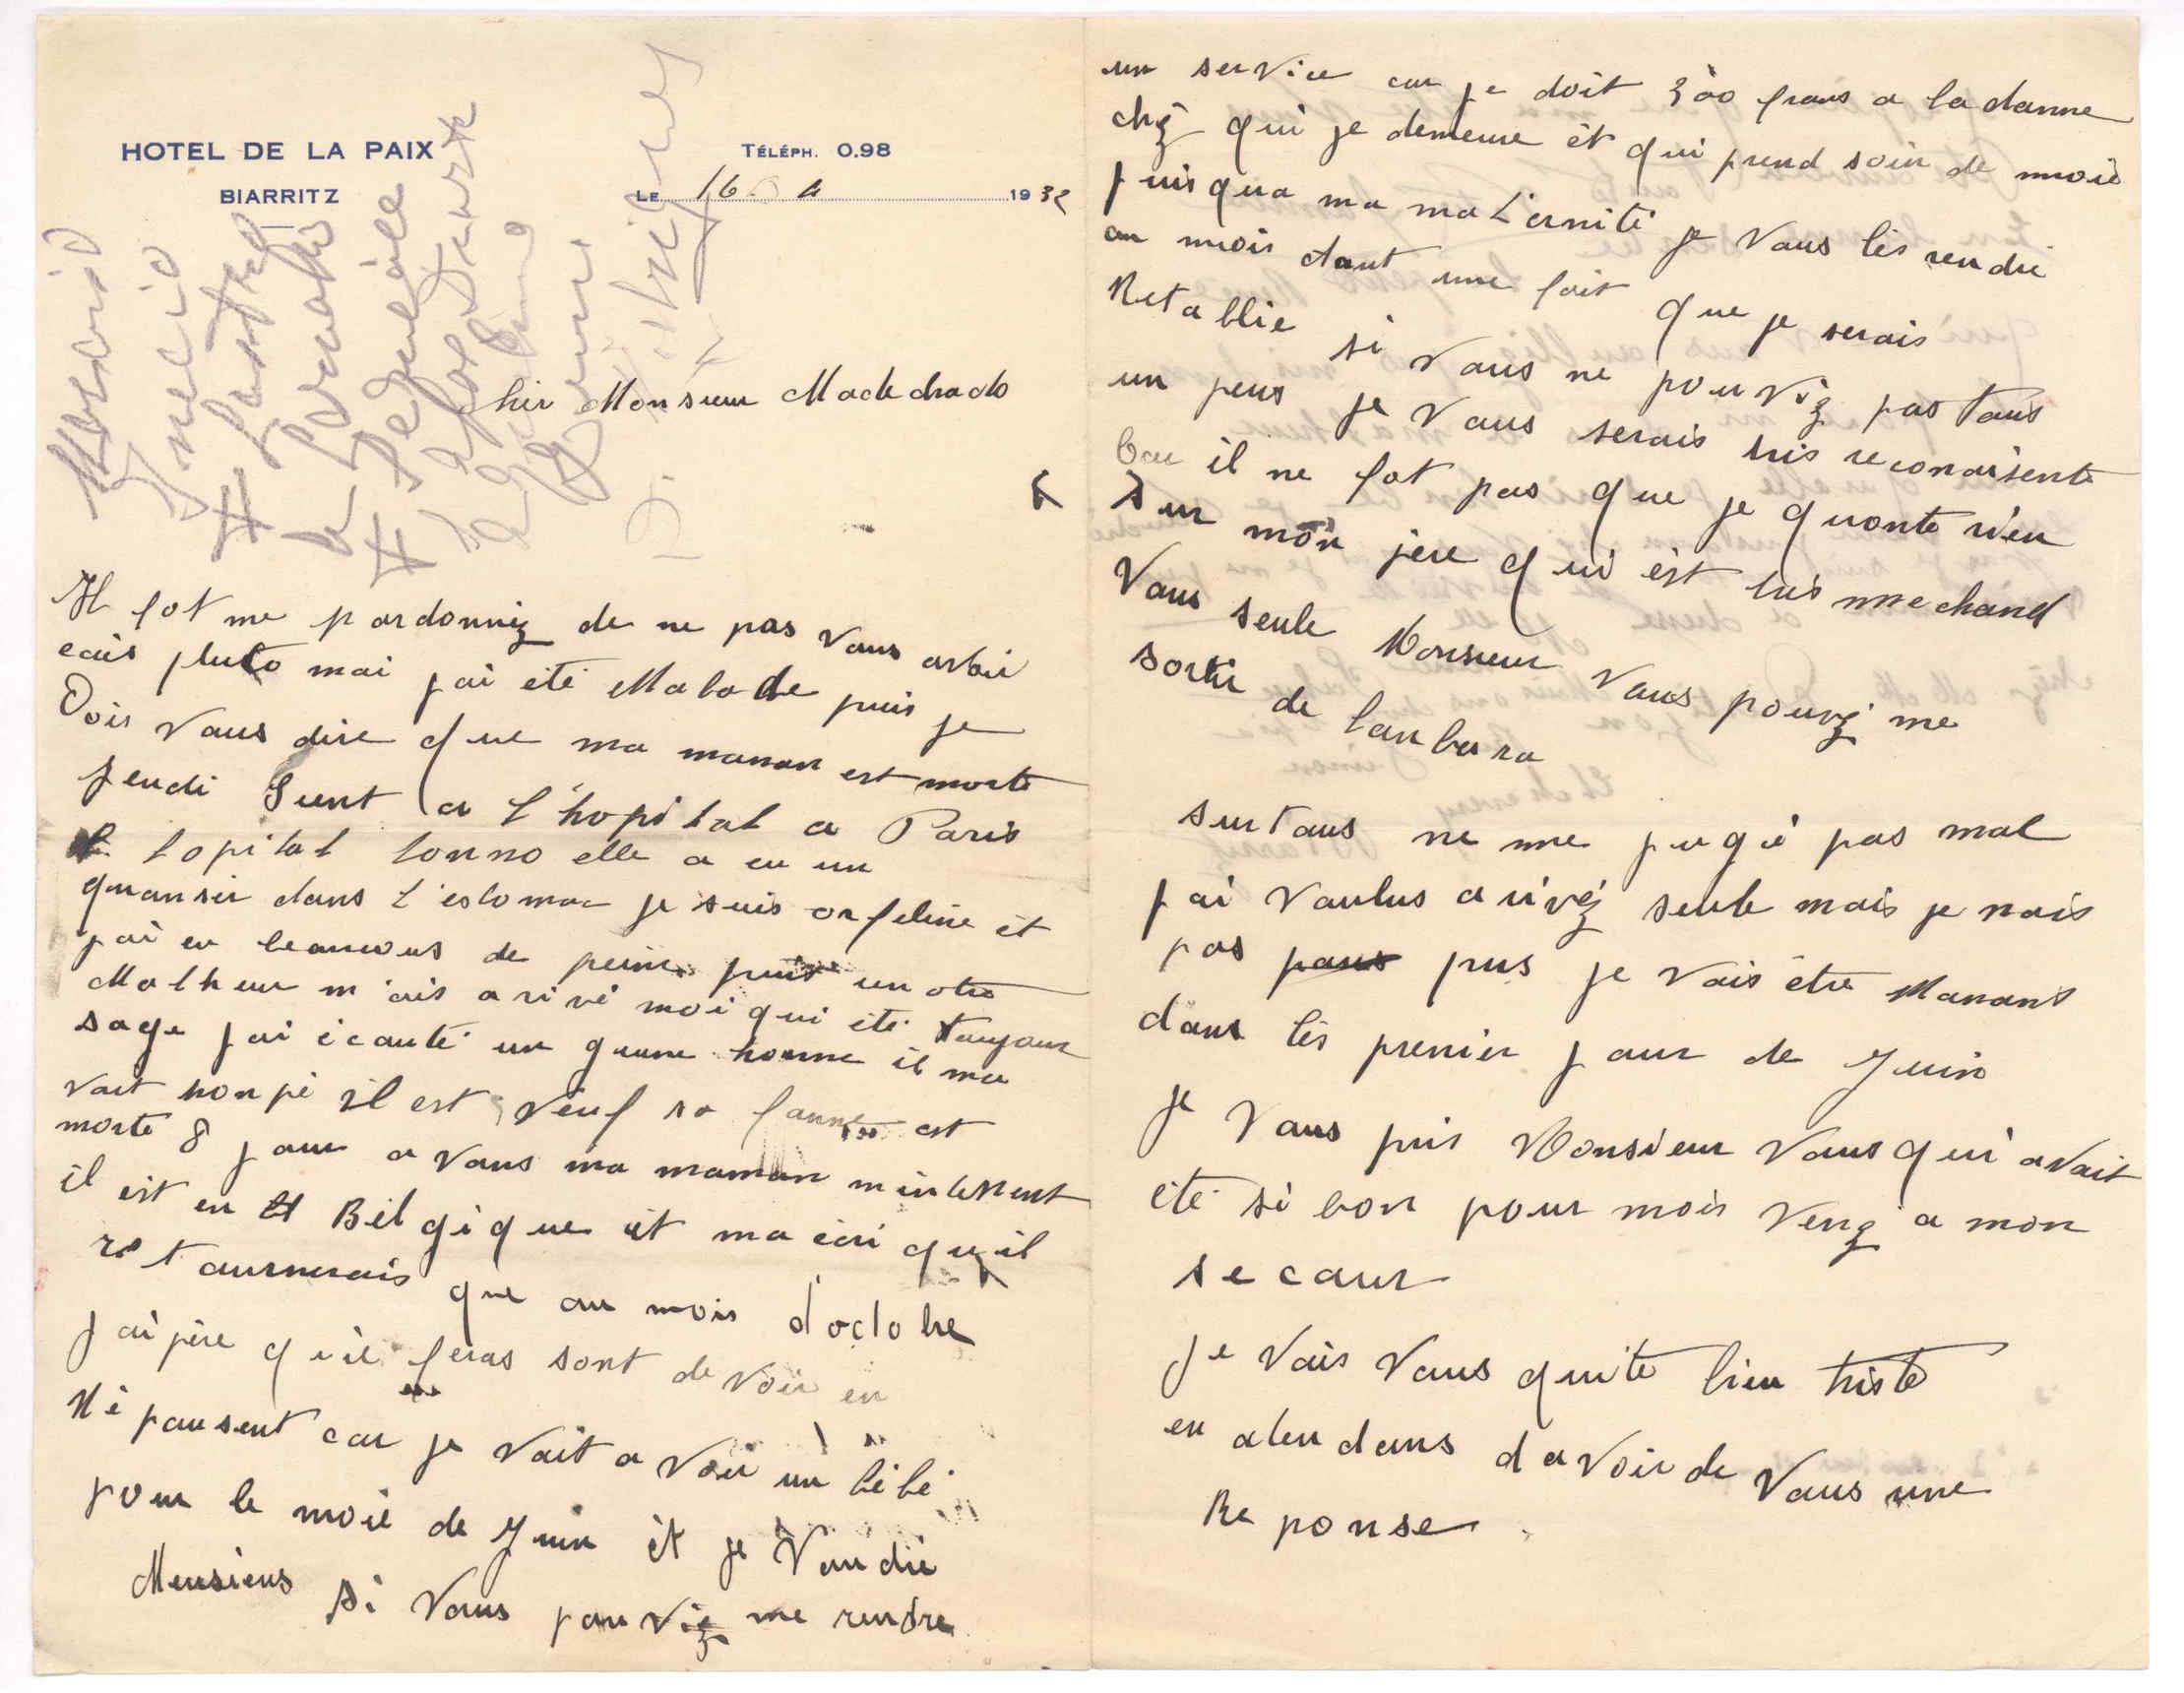 HOTEL DE LA PAIX
BIARRITZ
TÉLÉPH. 0.98
LE 16 4 1932
Madrid
Julio
cher Monsieur Machchado
Il fot me pardonnéz de ne pas vous avoir
ecris pluto mai jai été Malade puis je
Dois vous dire que ma maman est morte
jeudi Sunt a l'hopital a Paris
lopital tonno elle a eu un
quanser dans l'estomac je suis orfeline èt
jai eu beaucous de peine puis un otre
Malheur m'ais arivé moi qui été toujour
sage jai écouté un geune homme il ma
vait tronpé il est veuf sa famme est
morte 8 jour avans ma maman mintenent
il est en Bélgique èt ma écri qu'il
retournerais que au mois d'octobre
jaipère quil feras sont devoir en
Répausent car je vait avoir un bébé
pour le mois de Juin èt je voudré
Mensieus si vous pouviéz me rendre
un service car je doit 300 frans a la damme
chéz qui je demeure èt qui prend soin de moié
jusqua ma maternité je vous lés rendré
au mois daut une foit que je serais
Retablie si vous ne pouviéz pas tous
un peus je vous serais trés reconaisente
Car il ne fot pas que je quonte rien
sur mon père qui èst trés mechand
Vous seule Monsieur vous pouvéz me
sortir de lanbara
surtous ne me jugié pas mal
jai voulus arivéz seule mais je nais
pas pous pus je vais être Maman
dans lés premier jour de Juin
je vous pris Monsieur vous qui avait
été si bon pour mois venéz a mon
secour
je vais vous quité bien triste
en atendans davoir de vous une
Reponse